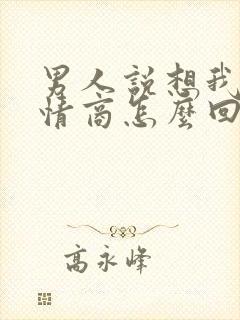 男人說想我
情商怎麼回
高永峰